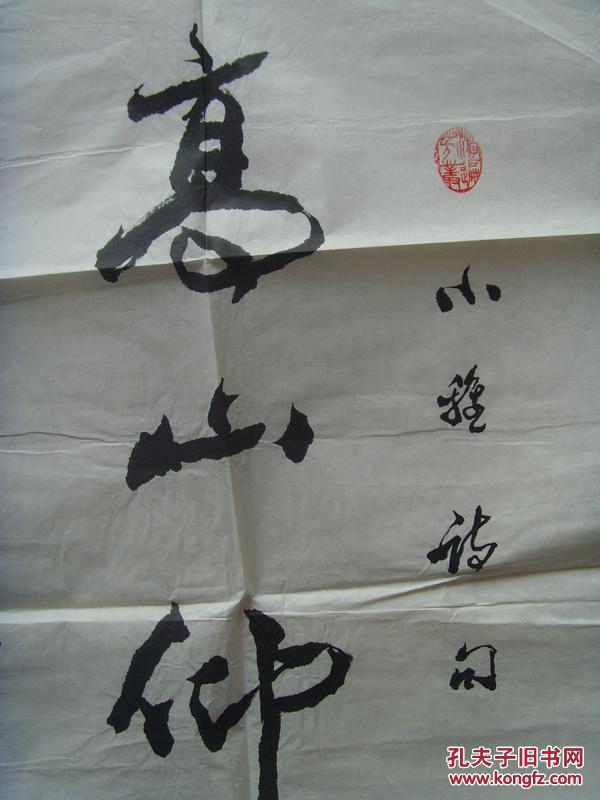 小雅诗句
高山仰
孔夫子旧书网
www.kongfz.com